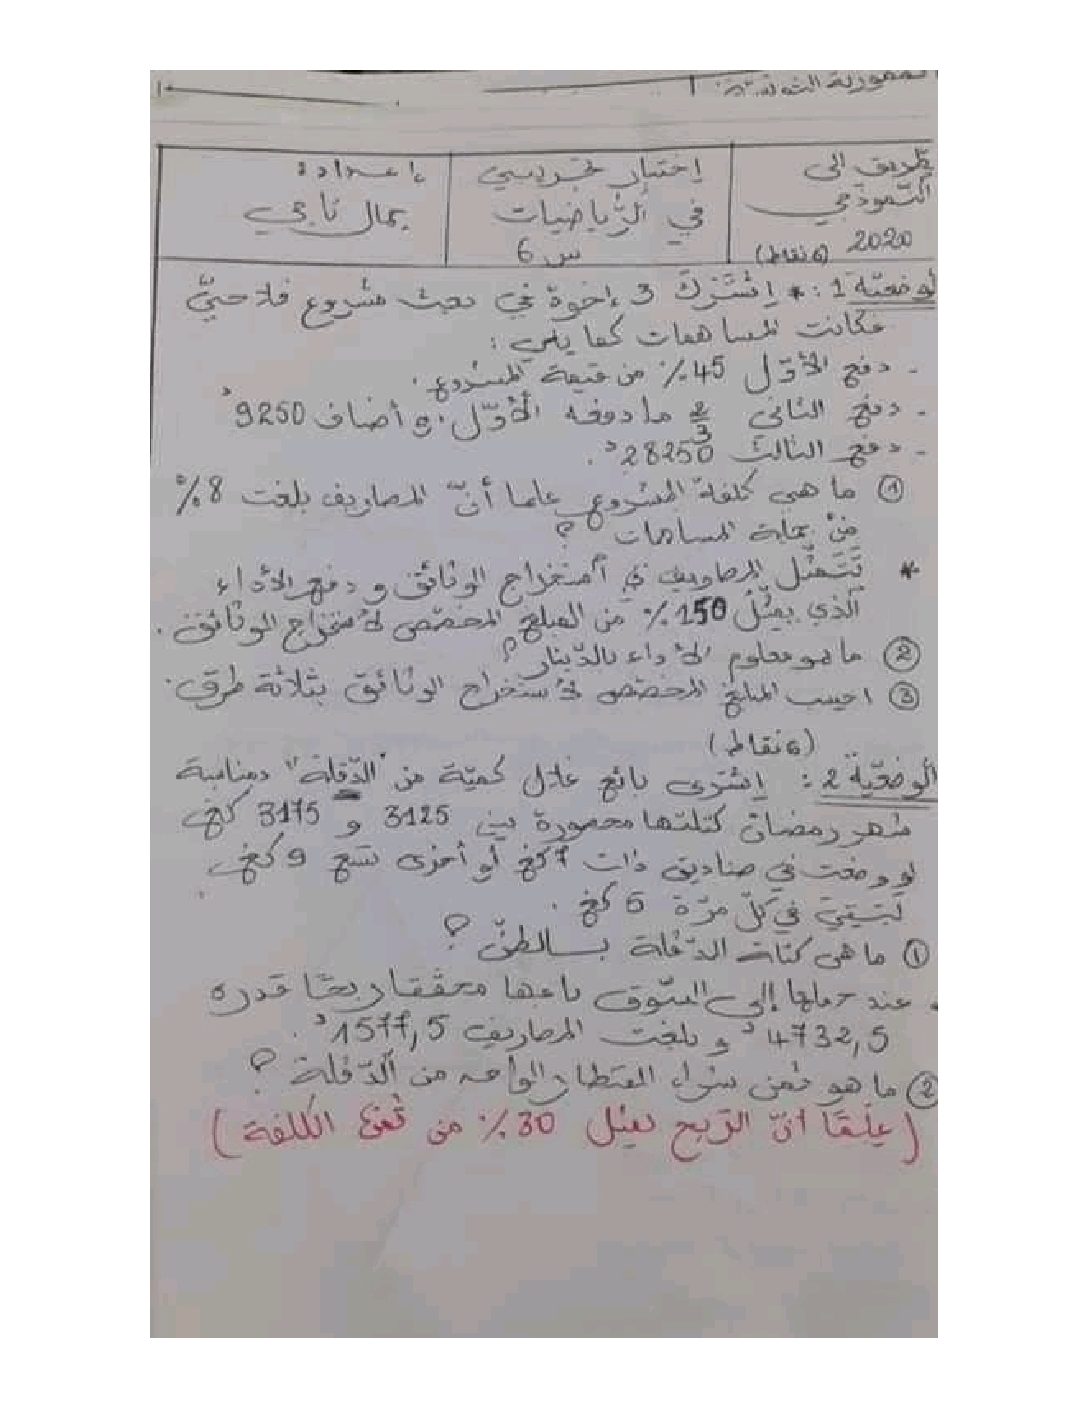 الجمهورية التونسية
الطريق إلى
النموذجي
2020
إختبار تجريبي
في الرّياضيات
س 6
إعداد:
جمال ناجي
(6 نقاط)
الوضعيّة 1: * إشترك 3 إخوة في بعث مشروع فلاحيّ
فكانت المساهمات كما يلي :
- دفع الأوّل 45٪ من قيمة المشروع.
- دفع الثاني 2/3 ما دفعه الأوّل. و أضاف 9250د
- دفع الثالث 28250د.
① ما هي كلفة المشروع علما أنّ المصاريف بلغت 8٪
من جملة المساهمات ؟
* تتمثّل المصاريف في استخراج الوثائق و دفع الأداء
الذي يمثّل 150٪ من المبلغ المخصّص لاستخراج الوثائق.
② ما هو معلوم الأداء بالدّينار ؟
③ احسب المبلغ المخصّص لاستخراج الوثائق بثلاثة طرق.
(6 نقاط)
الوضعيّة 2: إشترى بائع غلال كميّة من "الدّقلة" بمناسبة
شهر رمضان كتلتها محصورة بين 3125 و 3175 كغ
لو وضعت في صناديق ذات 7 كغ أو أخرى تسع 9 كغ
لتبقى في كلّ مرّة 6 كغ.
① ما هي كتلة الدّقلة بالطنّ ؟
عند حملها إلى السّوق باعها محقّقا ربحا قدره
4732,5د و بلغت المصاريف 1577,5د.
② ما هو ثمن شراء القنطار الواحد من الدّقلة ؟
(علما أنّ الرّبح يمثل 30٪ من ثمن الكلفة)